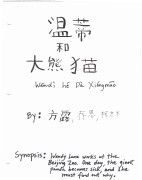 温蒂
和
大熊猫
Wendi hé Dà Xióngmāo
BY: 方露,
Synopsis: Wendy Luna works at the
Beijing Zoo. One day, the giant
panda becomes sick, and she
must find out why.